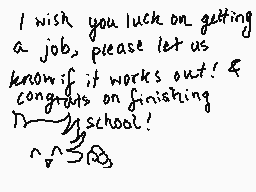 I wish you luck on getting
a job, please let us
know if it works out! &
congrats on finishing
school!